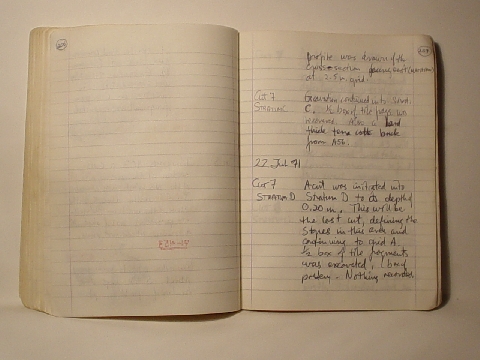 Profile was drawn of the
Cross-section facing east (
at 2.5 m. grid.
Cut 7 Excavation continued into Strat.
Stratum C C. ½ box of tile frags was
recovered. Also a
thick terra cotta brick
from A5b.
22 July 71
Cut 7 A cut was initiated into
Stratum D Stratum D to a depth of
0.20 m. This will be
the last cut, defining the
slopes in this area and
continuing to grid A.
½ box of tile fragments
was excavated, 1 bag
pottery. Nothing recorded